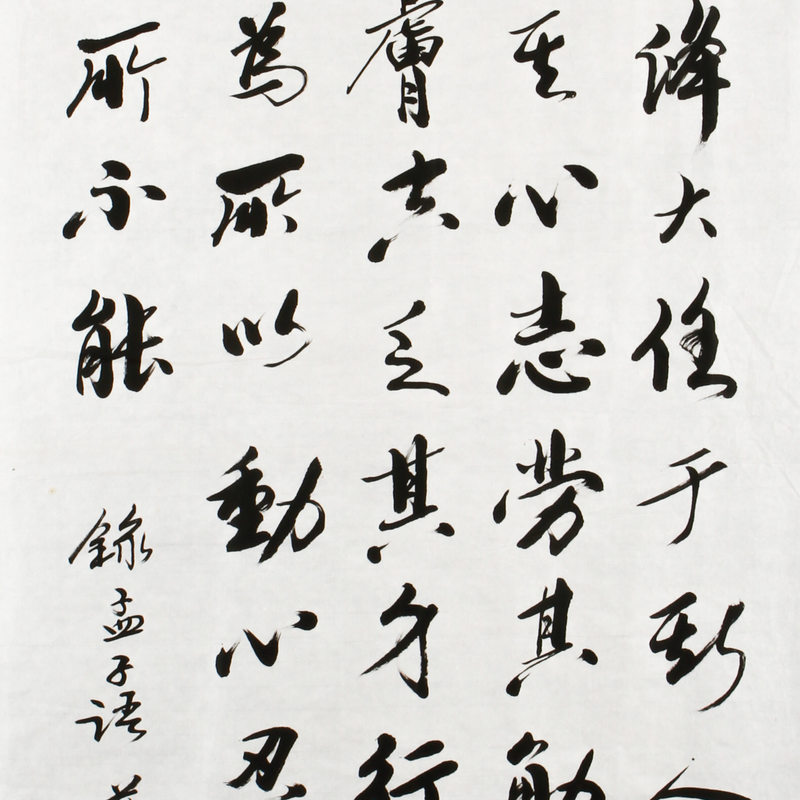 降大任于斯人
其心志劳其筋
膚空乏其身行
為所以動心忍
所不能
錄孟子語